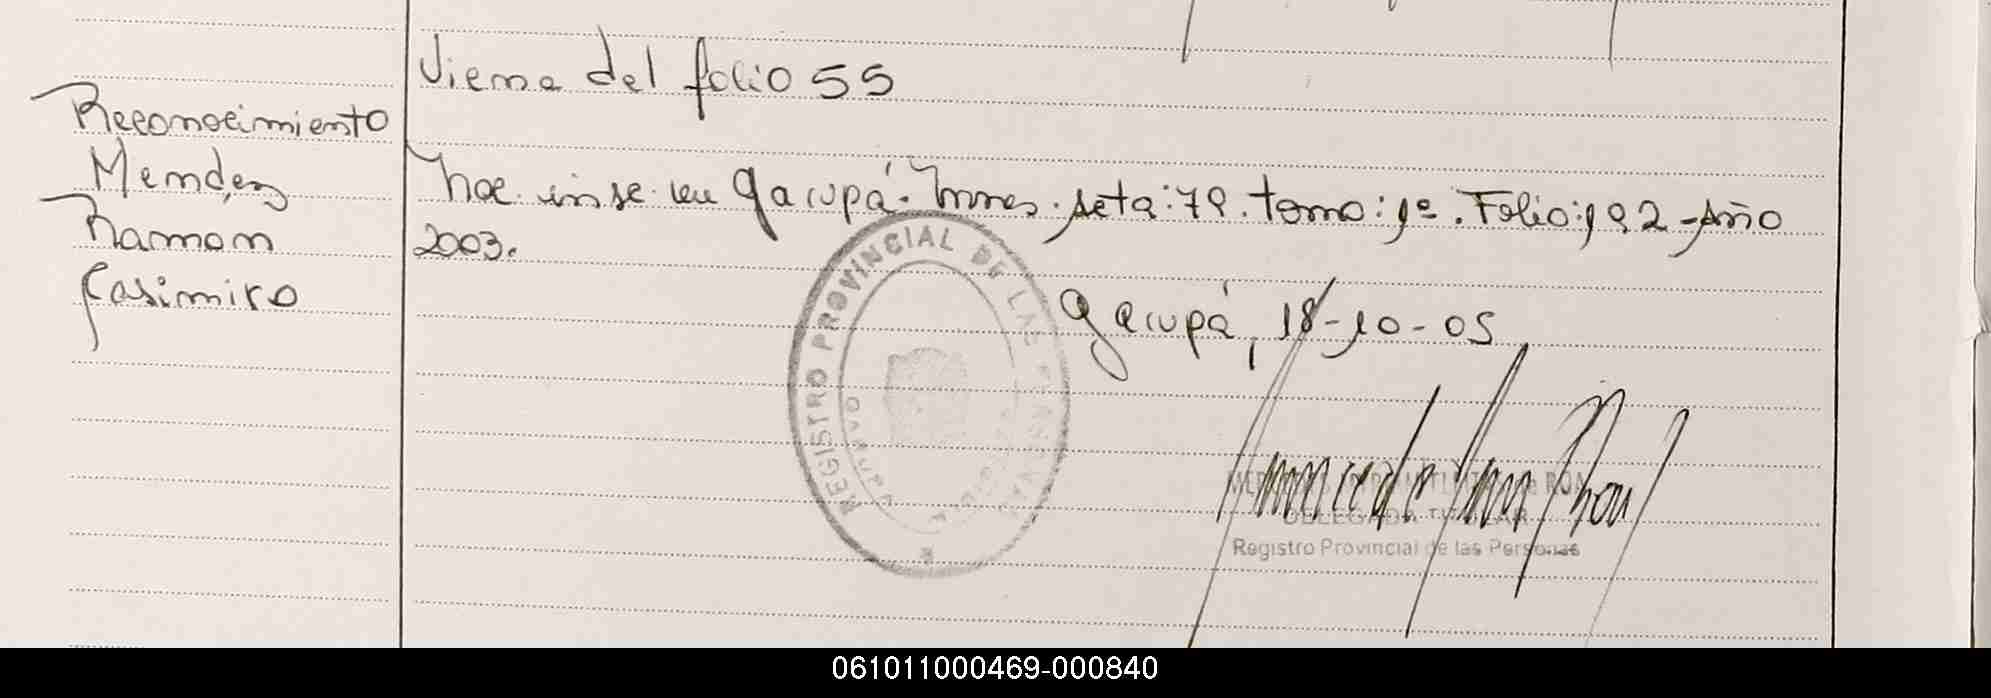 Viene del folio 55
Reconocimiento
Mendez
Ramon
Casimiro
Nac. insc. en Garupá. Mnes. Acta: 79. tomo: 1º. Folio: 192 - Año
2003.
Garupá, 18-10-05
REGISTRO PROVINCIAL DE LAS PERSONAS
DELEGADA TITULAR
Registro Provincial de las Personas
061011000469-000840